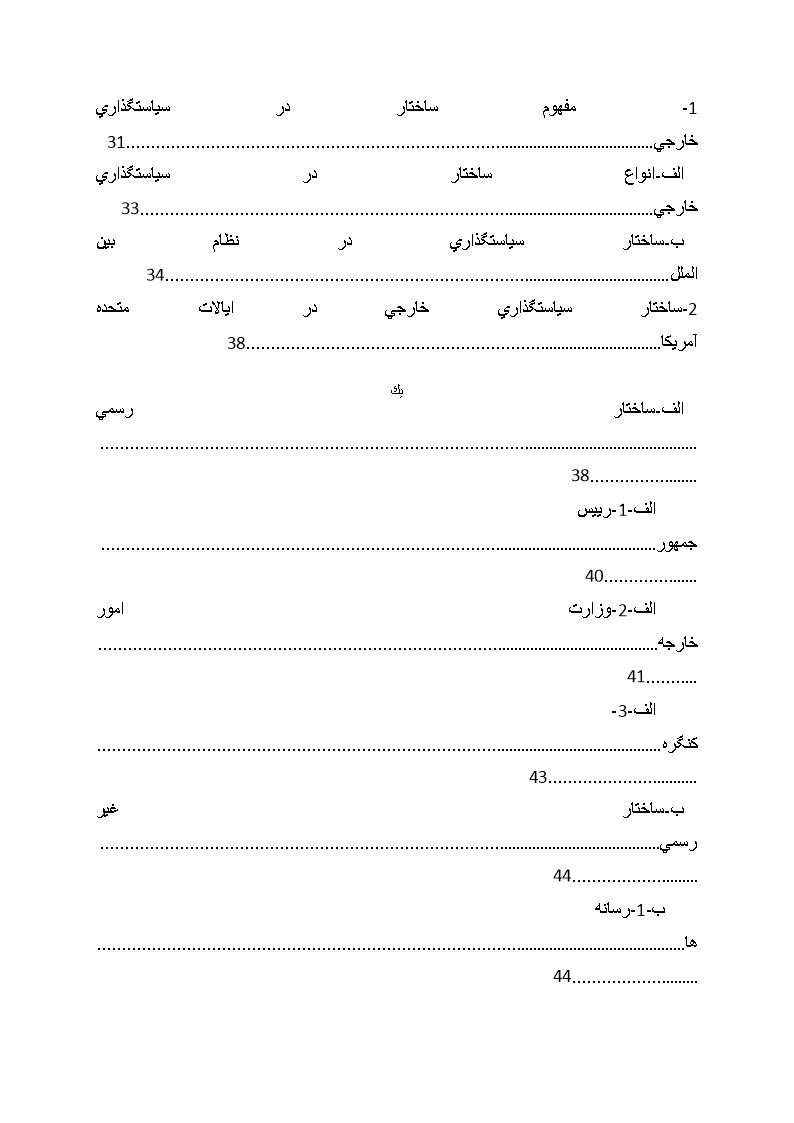 1- مفهوم ساختار در سياستگذاري
خارجي................................................................................................31
الف-انواع ساختار در سياستگذاري
خارجي..............................................................................................33
ب-ساختار سياستگذاري در نظام بين
الملل...........................................................................................34
2-ساختار سياستگذاري خارجي در ايالات متحده
آمريكا............................................................................38
يك
الف-ساختار رسمي
.......................................................................................................
......................38
الف-1-رييس
جمهور..................................................................................................
....................40
الف-2-وزارت امور
خارجه..................................................................................................
...........41
الف-3-
كنگره..................................................................................................
..............................43
ب-ساختار غير
رسمي..................................................................................................
..........................44
ب-1-رسانه
ها......................................................................................................
..........................44